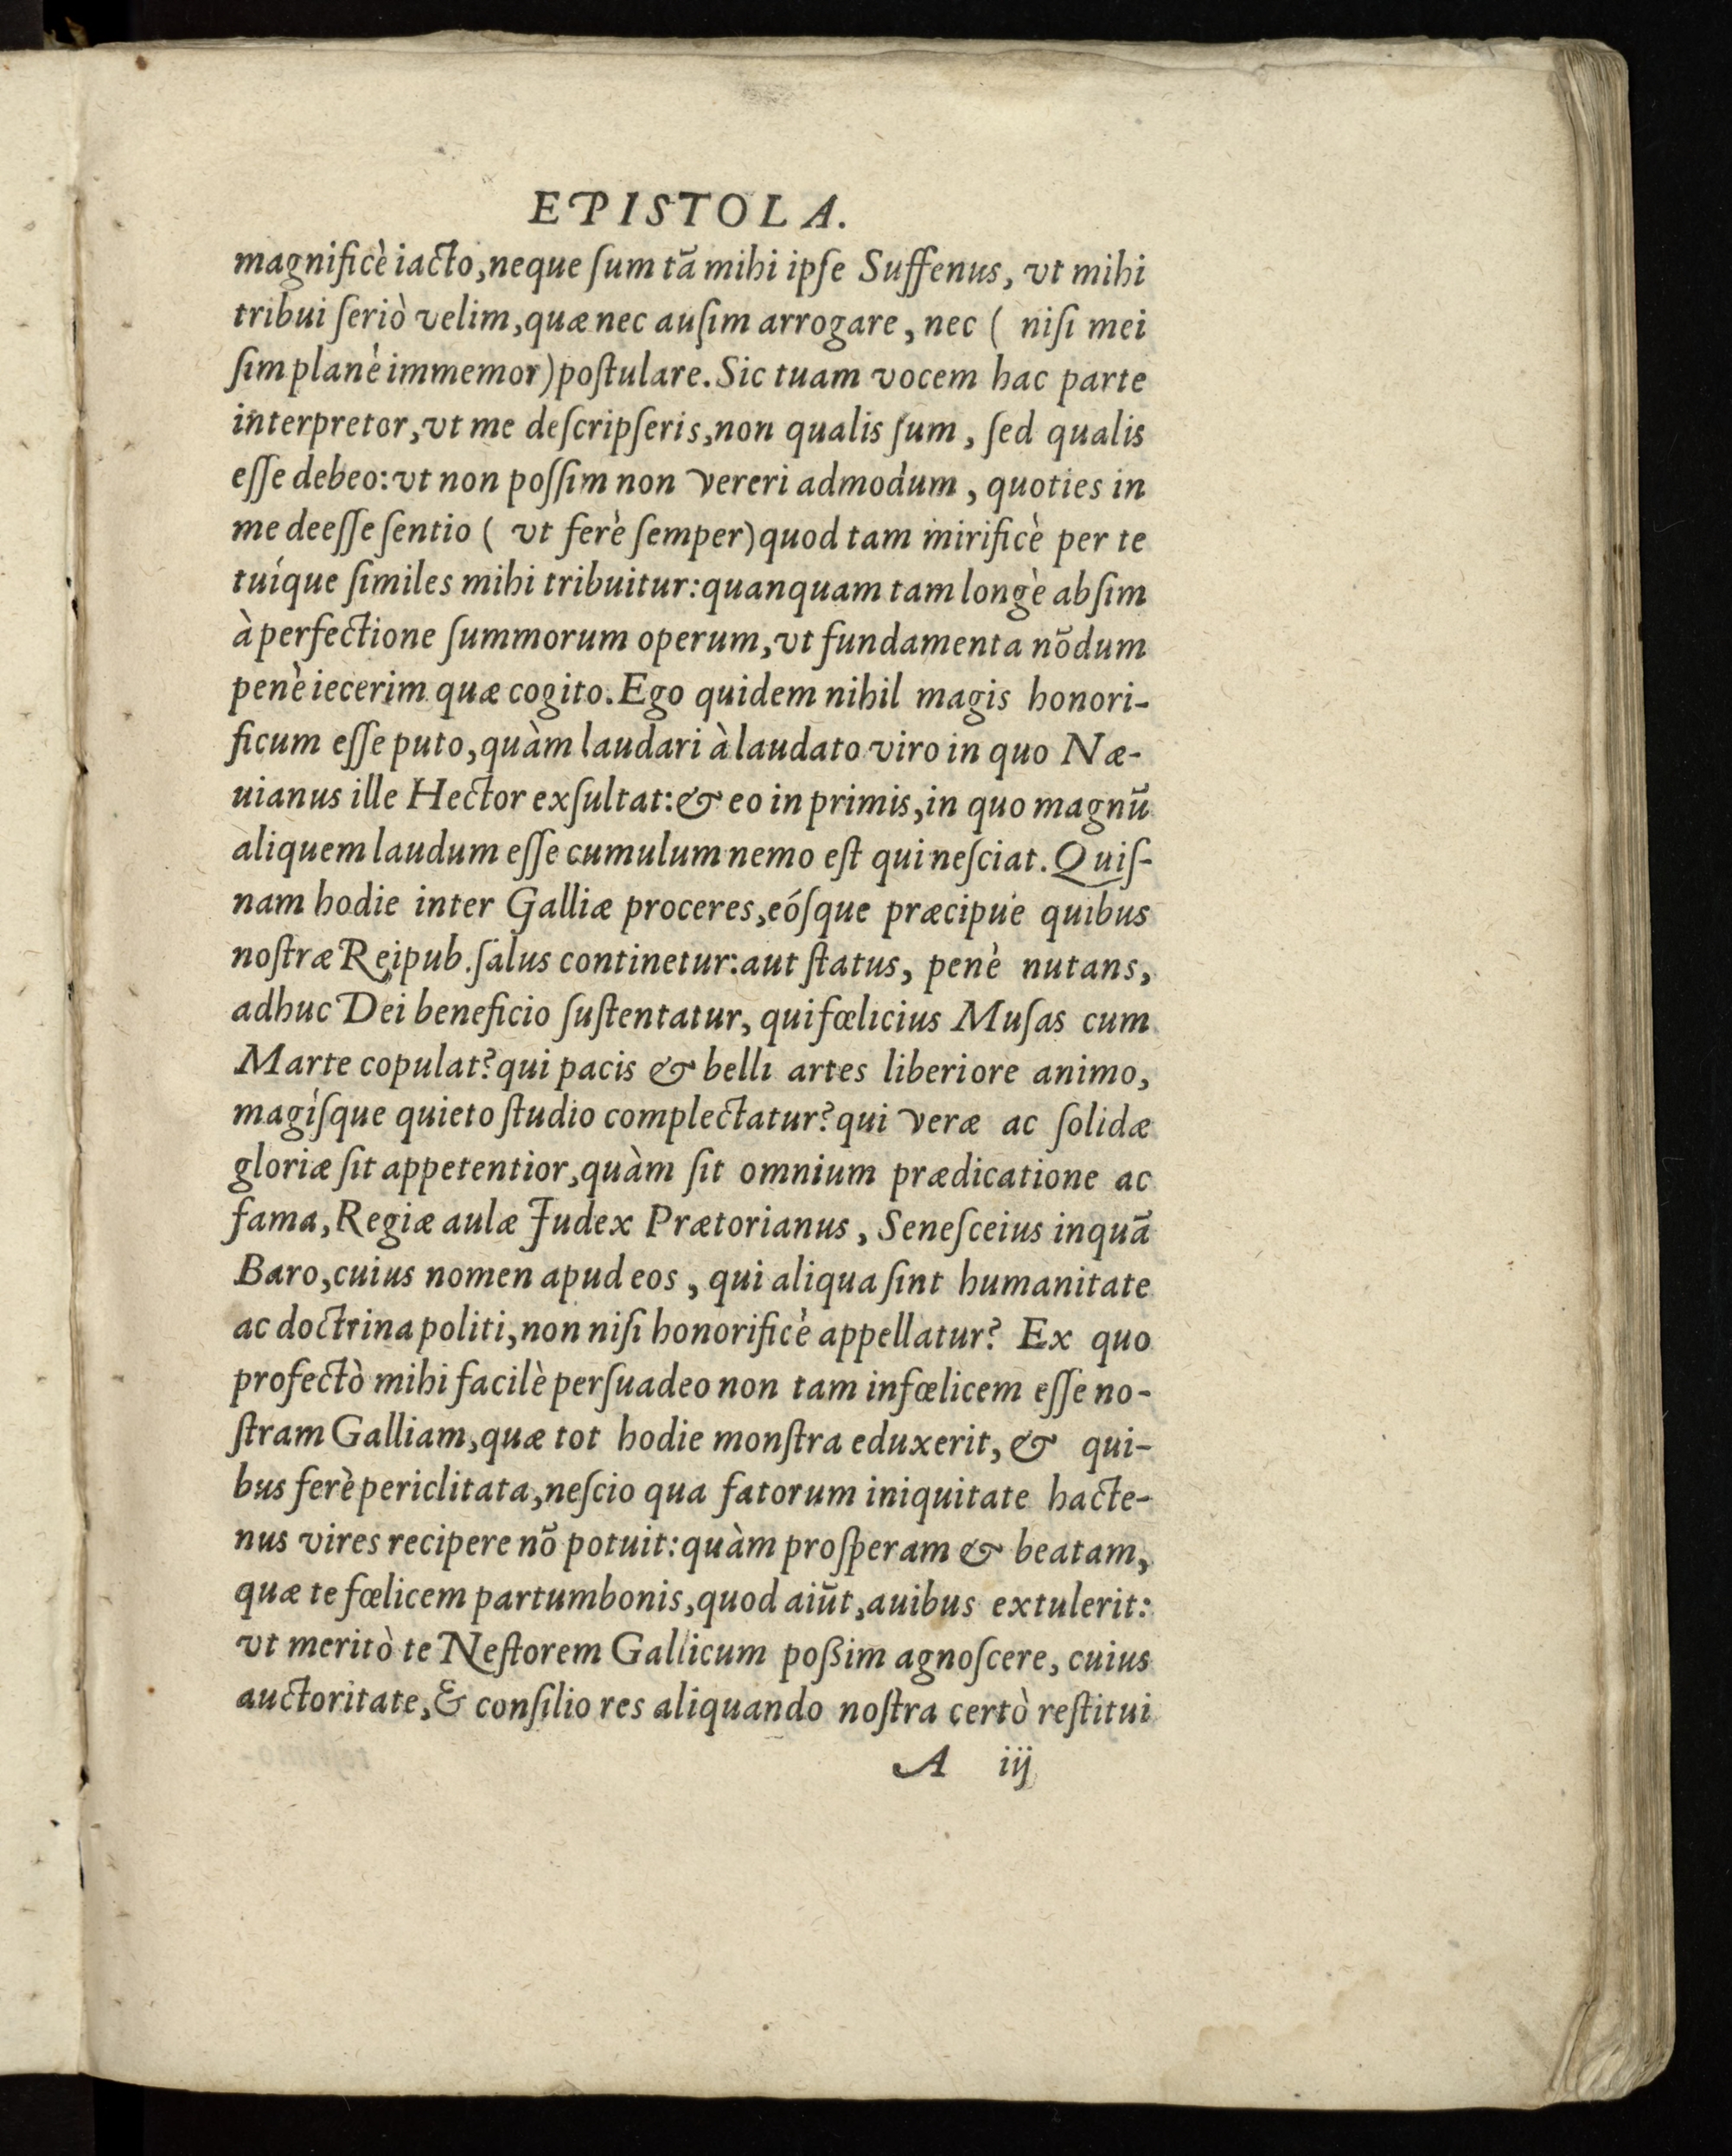 EPISTOLA.
magnificè iacto, neque ſum tã mihi ipſe Suffenus, vt mihi
tribui ſeriò velim, quæ nec auſim arrogare, nec ( niſi mei
ſim planè immemor) poſtulare. Sic tuam vocem hac parte
interpretor, vt me deſcripſeris, non qualis ſum, ſed qualis
eſſe debeo: vt non poſſim non vereri admodum, quoties in
me deeſſe ſentio ( vt ferè ſemper) quod tam mirificè per te
tuíque ſimiles mihi tribuitur: quanquam tam longè abſim
à perfectione ſummorum operum, vt fundamenta nõdum
penè iecerim quæ cogito. Ego quidem nihil magis honori-
ficum eſſe puto, quàm laudari à laudato viro in quo Næ-
uianus ille Hector exſultat: & eo in primis, in quo magnũ
aliquem laudum eſſe cumulum nemo eſt qui neſciat. Quiſ-
nam hodie inter Galliæ proceres, eóſque præcipuè quibus
noſtræ Reipub. ſalus continetur: aut ſtatus, penè nutans,
adhuc Dei beneficio ſuſtentatur, qui fœlicius Muſas cum
Marte copulat? qui pacis & belli artes liberiore animo,
magíſque quieto ſtudio complectatur? qui veræ ac ſolidæ
gloriæ ſit appetentior, quàm ſit omnium prædicatione ac
fama, Regiæ aulæ Judex Prætorianus, Seneſceius inquã
Baro, cuius nomen apud eos, qui aliqua ſint humanitate
ac doctrina politi, non niſi honorificè appellatur? Ex quo
profectò mihi facilè perſuadeo non tam infœlicem eſſe no-
ſtram Galliam, quæ tot hodie monſtra eduxerit, & qui-
bus ferè periclitata, neſcio qua fatorum iniquitate hacte-
nus vires recipere nõ potuit: quàm proſperam & beatam,
quæ te fœlicem partum bonis, quod aiũt, auibus extulerit:
vt meritò te Neſtorem Gallicum poßim agnoſcere, cuius
auctoritate, & conſilio res aliquando noſtra certò reſtitui
A iij